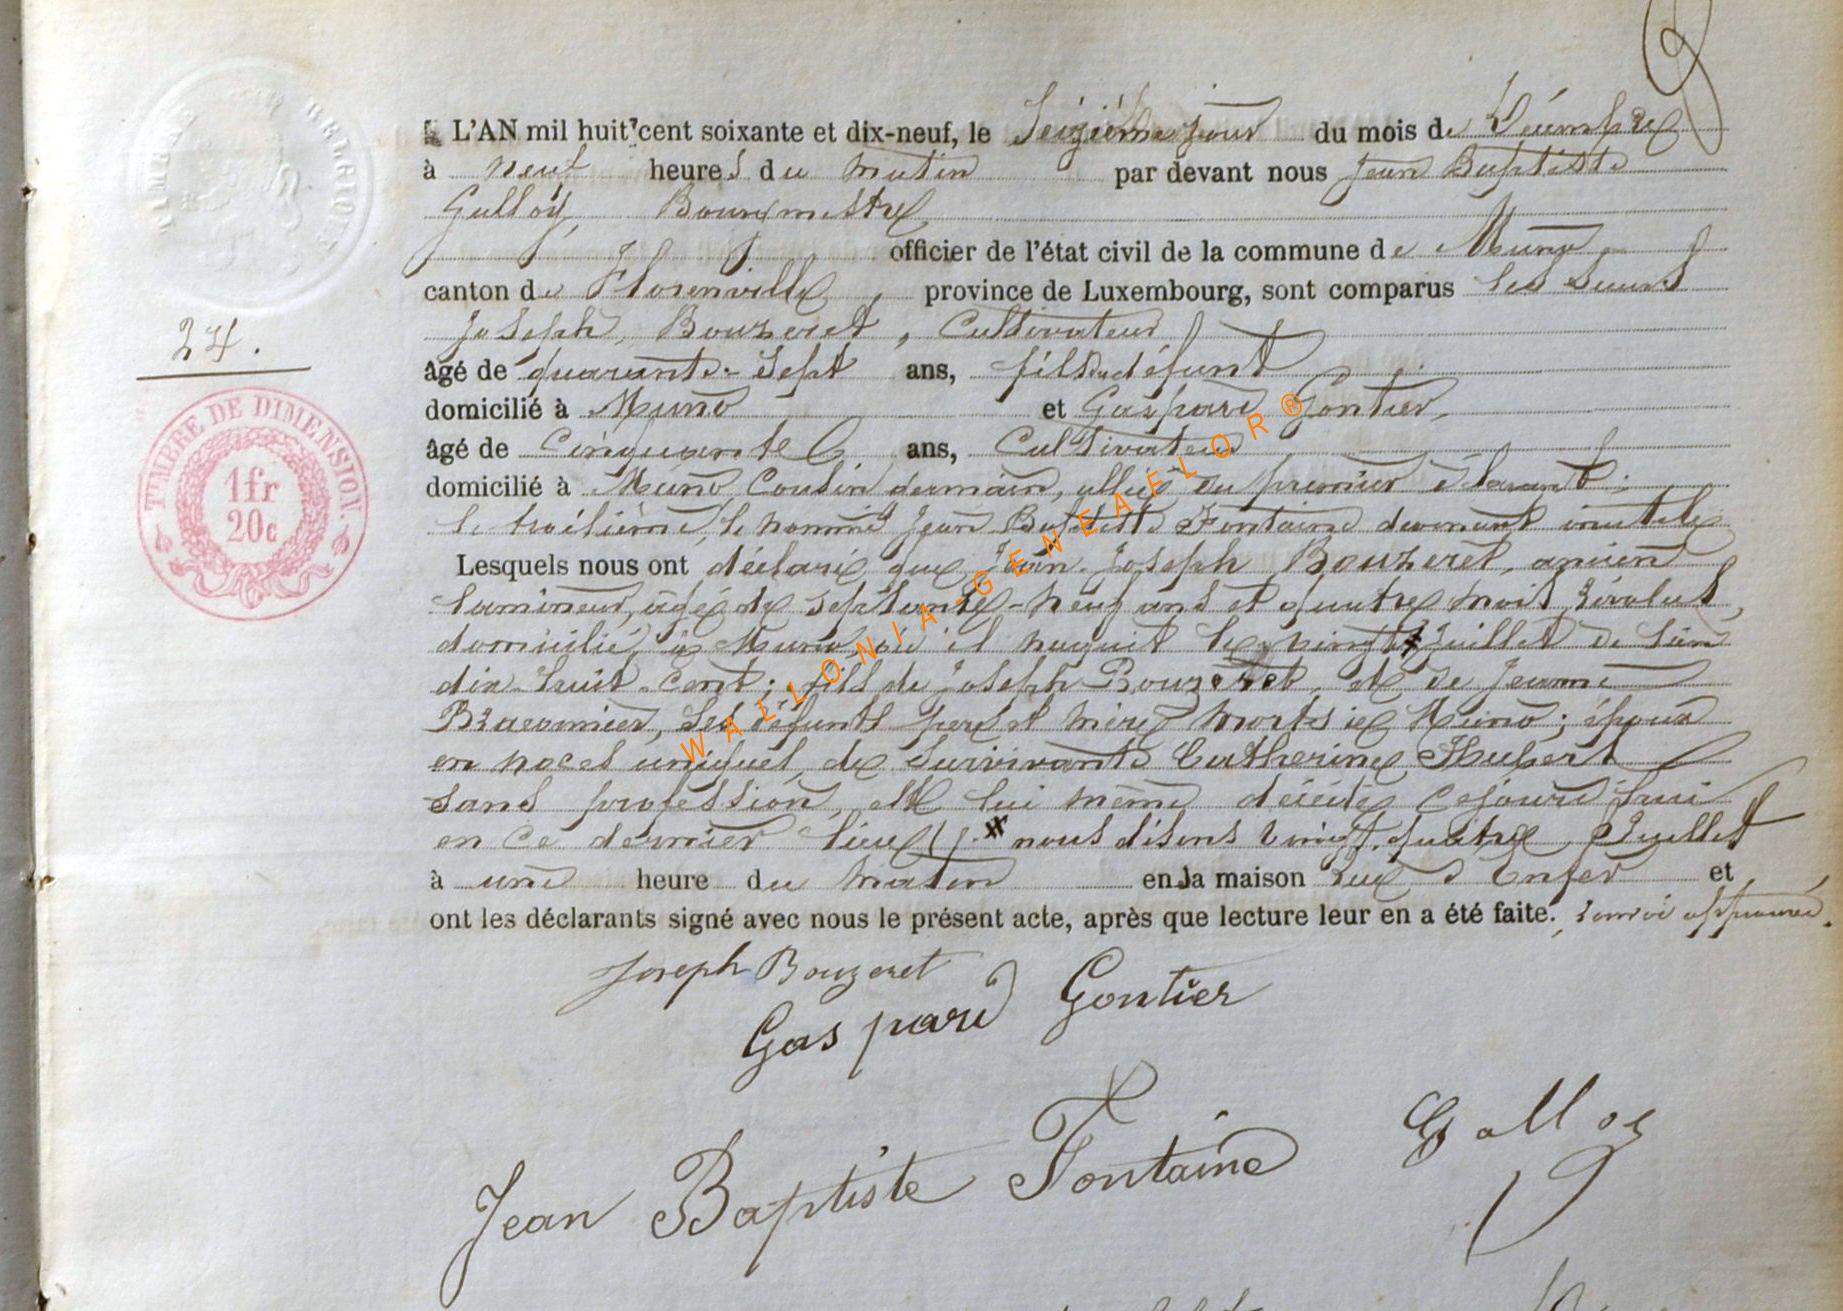 TIMBRE BELGIQUE
L'AN mil huit cent soixante et dix-neuf, le Seizième jour du mois de Décembre
à neuf heures du matin par devant nous Jean Baptiste
Galloy, Bourgmestre
officier de l'état civil de la commune de Muno
canton de Florenville, province de Luxembourg, sont comparus les sieurs
Joseph Bouzeret, Cultivateur
24.
âgé de quarante-sept ans, fils du défunt
domicilié à Muno et Gaspard Gontier,
âgé de Cinquante ans, Cultivateur
domicilié à Muno, Cousin germain, allié au premier déclarant;
le troisième, le nommé Jean Baptiste Fontaine devenant inutile
Lesquels nous ont déclaré que Jean-Joseph Bouzeret, ancien
lamineur, âgé de septante-neuf ans et quatre mois révolus,
domicilié à Muno, où il naquit le vingt # Juillet de l'an
dix-huit-cent; fils de Joseph Bouzeret, et de Jeanne
Braconnier, ses défunts père et mère morts ici Muno; époux
en noces uniques, de survivante Catherine Hubert
sans profession, est lui même décédé cejourd'hui
en ce dernier lieu # nous disons vingt-quatre Juillet
à une heure du matin en la maison rue d'Enfer et
ont les déclarants signé avec nous le présent acte, après que lecture leur en a été faite. renvoi approuvé.
TIMBRE DE DIMENSION.
1 fr
20 c
WALLONIA-GENEAFLOR®
Joseph Bouzeret
Gaspard Gontier
Jean Baptiste Fontaine
Galloy